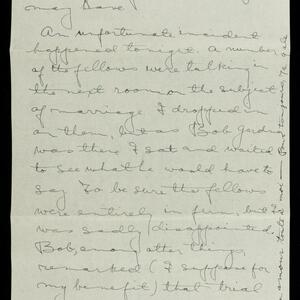 may Dave
An unfortunate incident
happened tonight. A number
of the fellows were talking in
the next room on the subject
of marriage. I dropped in
on them, but as Bob
was there I sat and waited
to see what he would have to
say. To be sure the fellows
were entirely in fun, but I
was sadly disappointed.
Bob, among other things,
remarked (I suppose for
my benefit) that trial